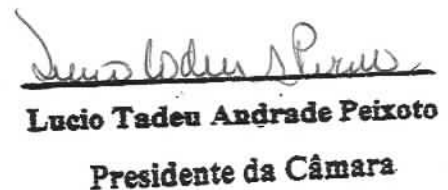 Lucio Tadeu Andrade Peixoto
Presidente da Câmara